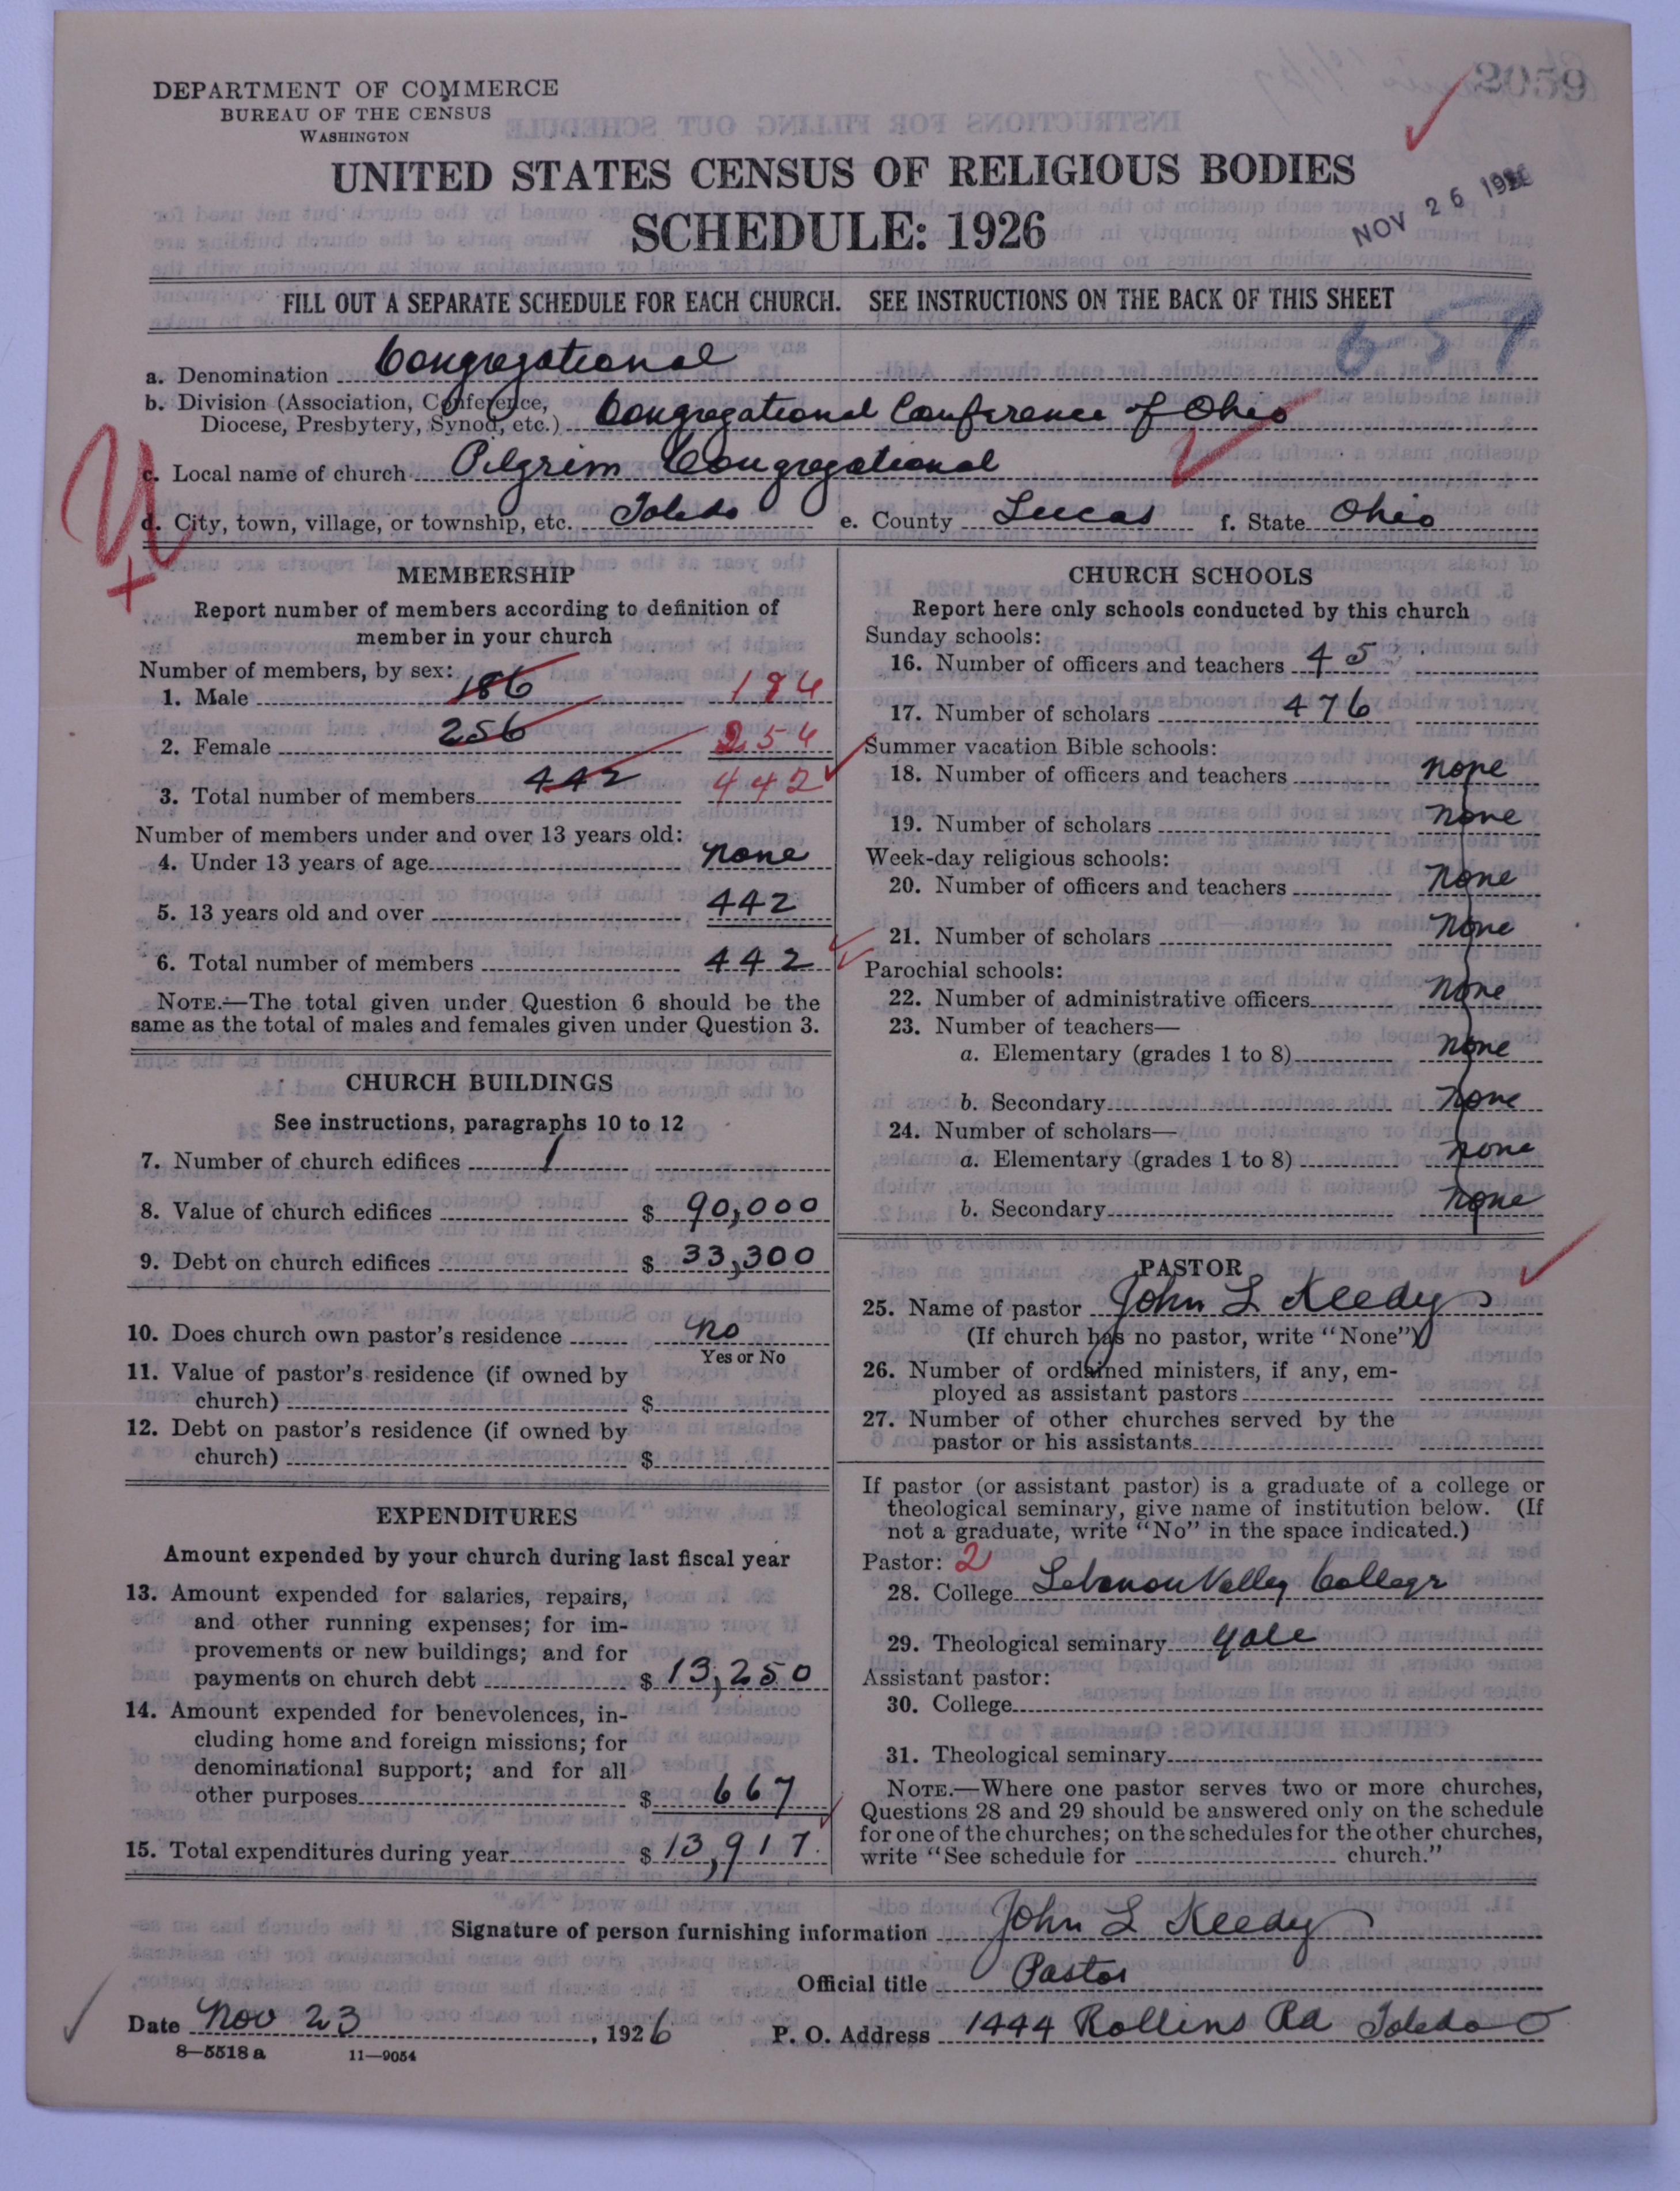 2059
DEPARTMENT OF COMMERCE
BUREAU OF THE CENSUS
WASHINGTON
UNITED STATES CENSUS OF RELIGIOUS BODIES
SCHEDULE: 1926
NOV 26 1926
FILL OUT A SEPARATE SCHEDULE FOR EACH CHURCH. SEE INSTRUCTIONS ON THE BACK OF THIS SHEET
657
a. Denomination Congregational
b. Division (Association, Conference,
Diocese, Presbytery, Synod, etc.) Congregational Conference of Ohio
c. Local name of church Pilgrim Congregational
d. City, town, village, or township, etc. Toledo e. County Lucas f. State Ohio
MEMBERSHIP
Report number of members according to definition of
member in your church
Number of members, by sex:
1. Male 186 186
2. Female 256 256
3. Total number of members 442 442
Number of members under and over 13 years old:
4. Under 13 years of age none
5. 13 years old and over 442
6. Total number of members 442
NOTE.—The total given under Question 6 should be the
same as the total of males and females given under Question 3.
CHURCH BUILDINGS
See instructions, paragraphs 10 to 12
7. Number of church edifices 1
8. Value of church edifices $ 90,000
9. Debt on church edifices $ 33,300
10. Does church own pastor's residence no
Yes or No
11. Value of pastor's residence (if owned by
church) $
12. Debt on pastor's residence (if owned by
church) $
EXPENDITURES
Amount expended by your church during last fiscal year
13. Amount expended for salaries, repairs,
and other running expenses; for im-
provements or new buildings; and for
payments on church debt $ 13,250
14. Amount expended for benevolences, in-
cluding home and foreign missions; for
denominational support; and for all
other purposes $ 667
15. Total expenditures during year $ 13,917.
CHURCH SCHOOLS
Report here only schools conducted by this church
Sunday schools:
16. Number of officers and teachers 45
17. Number of scholars 476
Summer vacation Bible schools:
18. Number of officers and teachers none
19. Number of scholars none
Week-day religious schools:
20. Number of officers and teachers none
21. Number of scholars none
Parochial schools:
22. Number of administrative officers none
23. Number of teachers—
a. Elementary (grades 1 to 8) none
b. Secondary none
24. Number of scholars—
a. Elementary (grades 1 to 8) none
b. Secondary none
PASTOR
25. Name of pastor John L Keedy
(If church has no pastor, write "None")
26. Number of ordained ministers, if any, em-
ployed as assistant pastors
27. Number of other churches served by the
pastor or his assistants
If pastor (or assistant pastor) is a graduate of a college or
theological seminary, give name of institution below. (If
not a graduate, write "No" in the space indicated.)
Pastor: 2
28. College Lebanon Valley College
29. Theological seminary Yale
Assistant pastor:
30. College
31. Theological seminary
NOTE.—Where one pastor serves two or more churches,
Questions 28 and 29 should be answered only on the schedule
for one of the churches; on the schedules for the other churches,
write "See schedule for church."
Signature of person furnishing information John L Keedy
Official title Pastor
Date Nov 23, 1926 P. O. Address 1444 Rollins Rd Toledo O
8—5518 a 11—9054